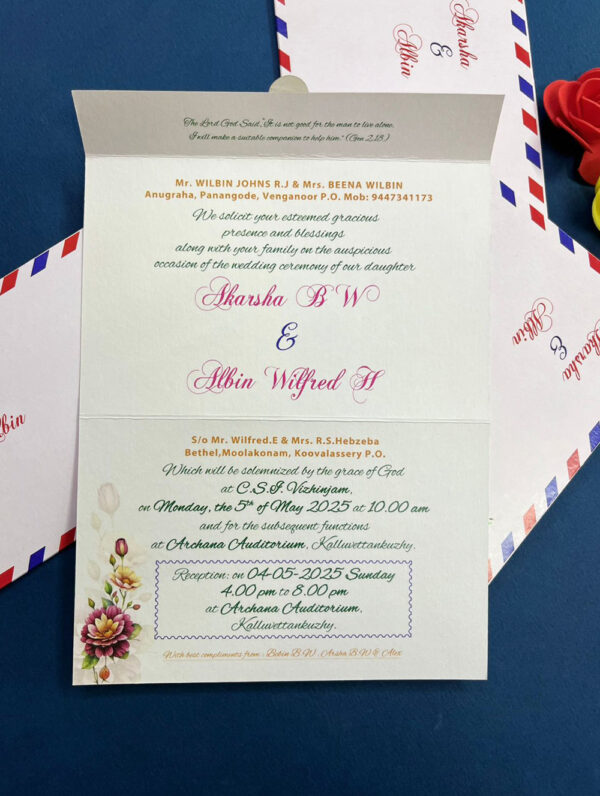 Akarsha
&
Albin
The Lord God Said,"It is not good for the man to live alone.
I will make a suitable companion to help him." (Gen 2,18.)
Mr. WILBIN JOHNS R.J & Mrs. BEENA WILBIN
Anugraha, Panangode, Venganoor P.O. Mob: 9447341173
We solicit your esteemed gracious
presence and blessings
along with your family on the auspicious
occasion of the wedding ceremony of our daughter
Akarsha B W
&
Albin Wilfred H
S/o Mr. Wilfred.E & Mrs. R.S.Hebzeba
Bethel,Moolakonam, Koovalassery P.O.
Which will be solemnized by the grace of God
at C.S.I. Vizhinjam,
on Monday, the 5th of May 2025 at 10.00 am
and for the subsequent functions
at Archana Auditorium, Kalluvettankuzhy.
Reception: on 04-05-2025 Sunday
4.00 pm to 8.00 pm
at Archana Auditorium,
Kalluvettankuzhy.
With best compliments from : Bebin B.W , Arsha B.W & Alex
Akarsha
&
Albin
lbin